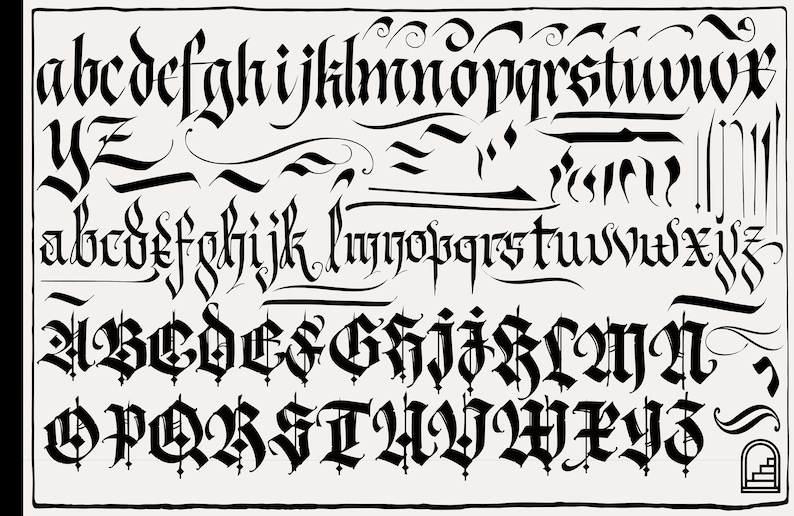 abcdefghijklmnopqrstuvwx
yz
abcdefghijklmnopqrstuvwxyz
ABCDEFGHIJKLMN
OPQRSTUVWXYZ